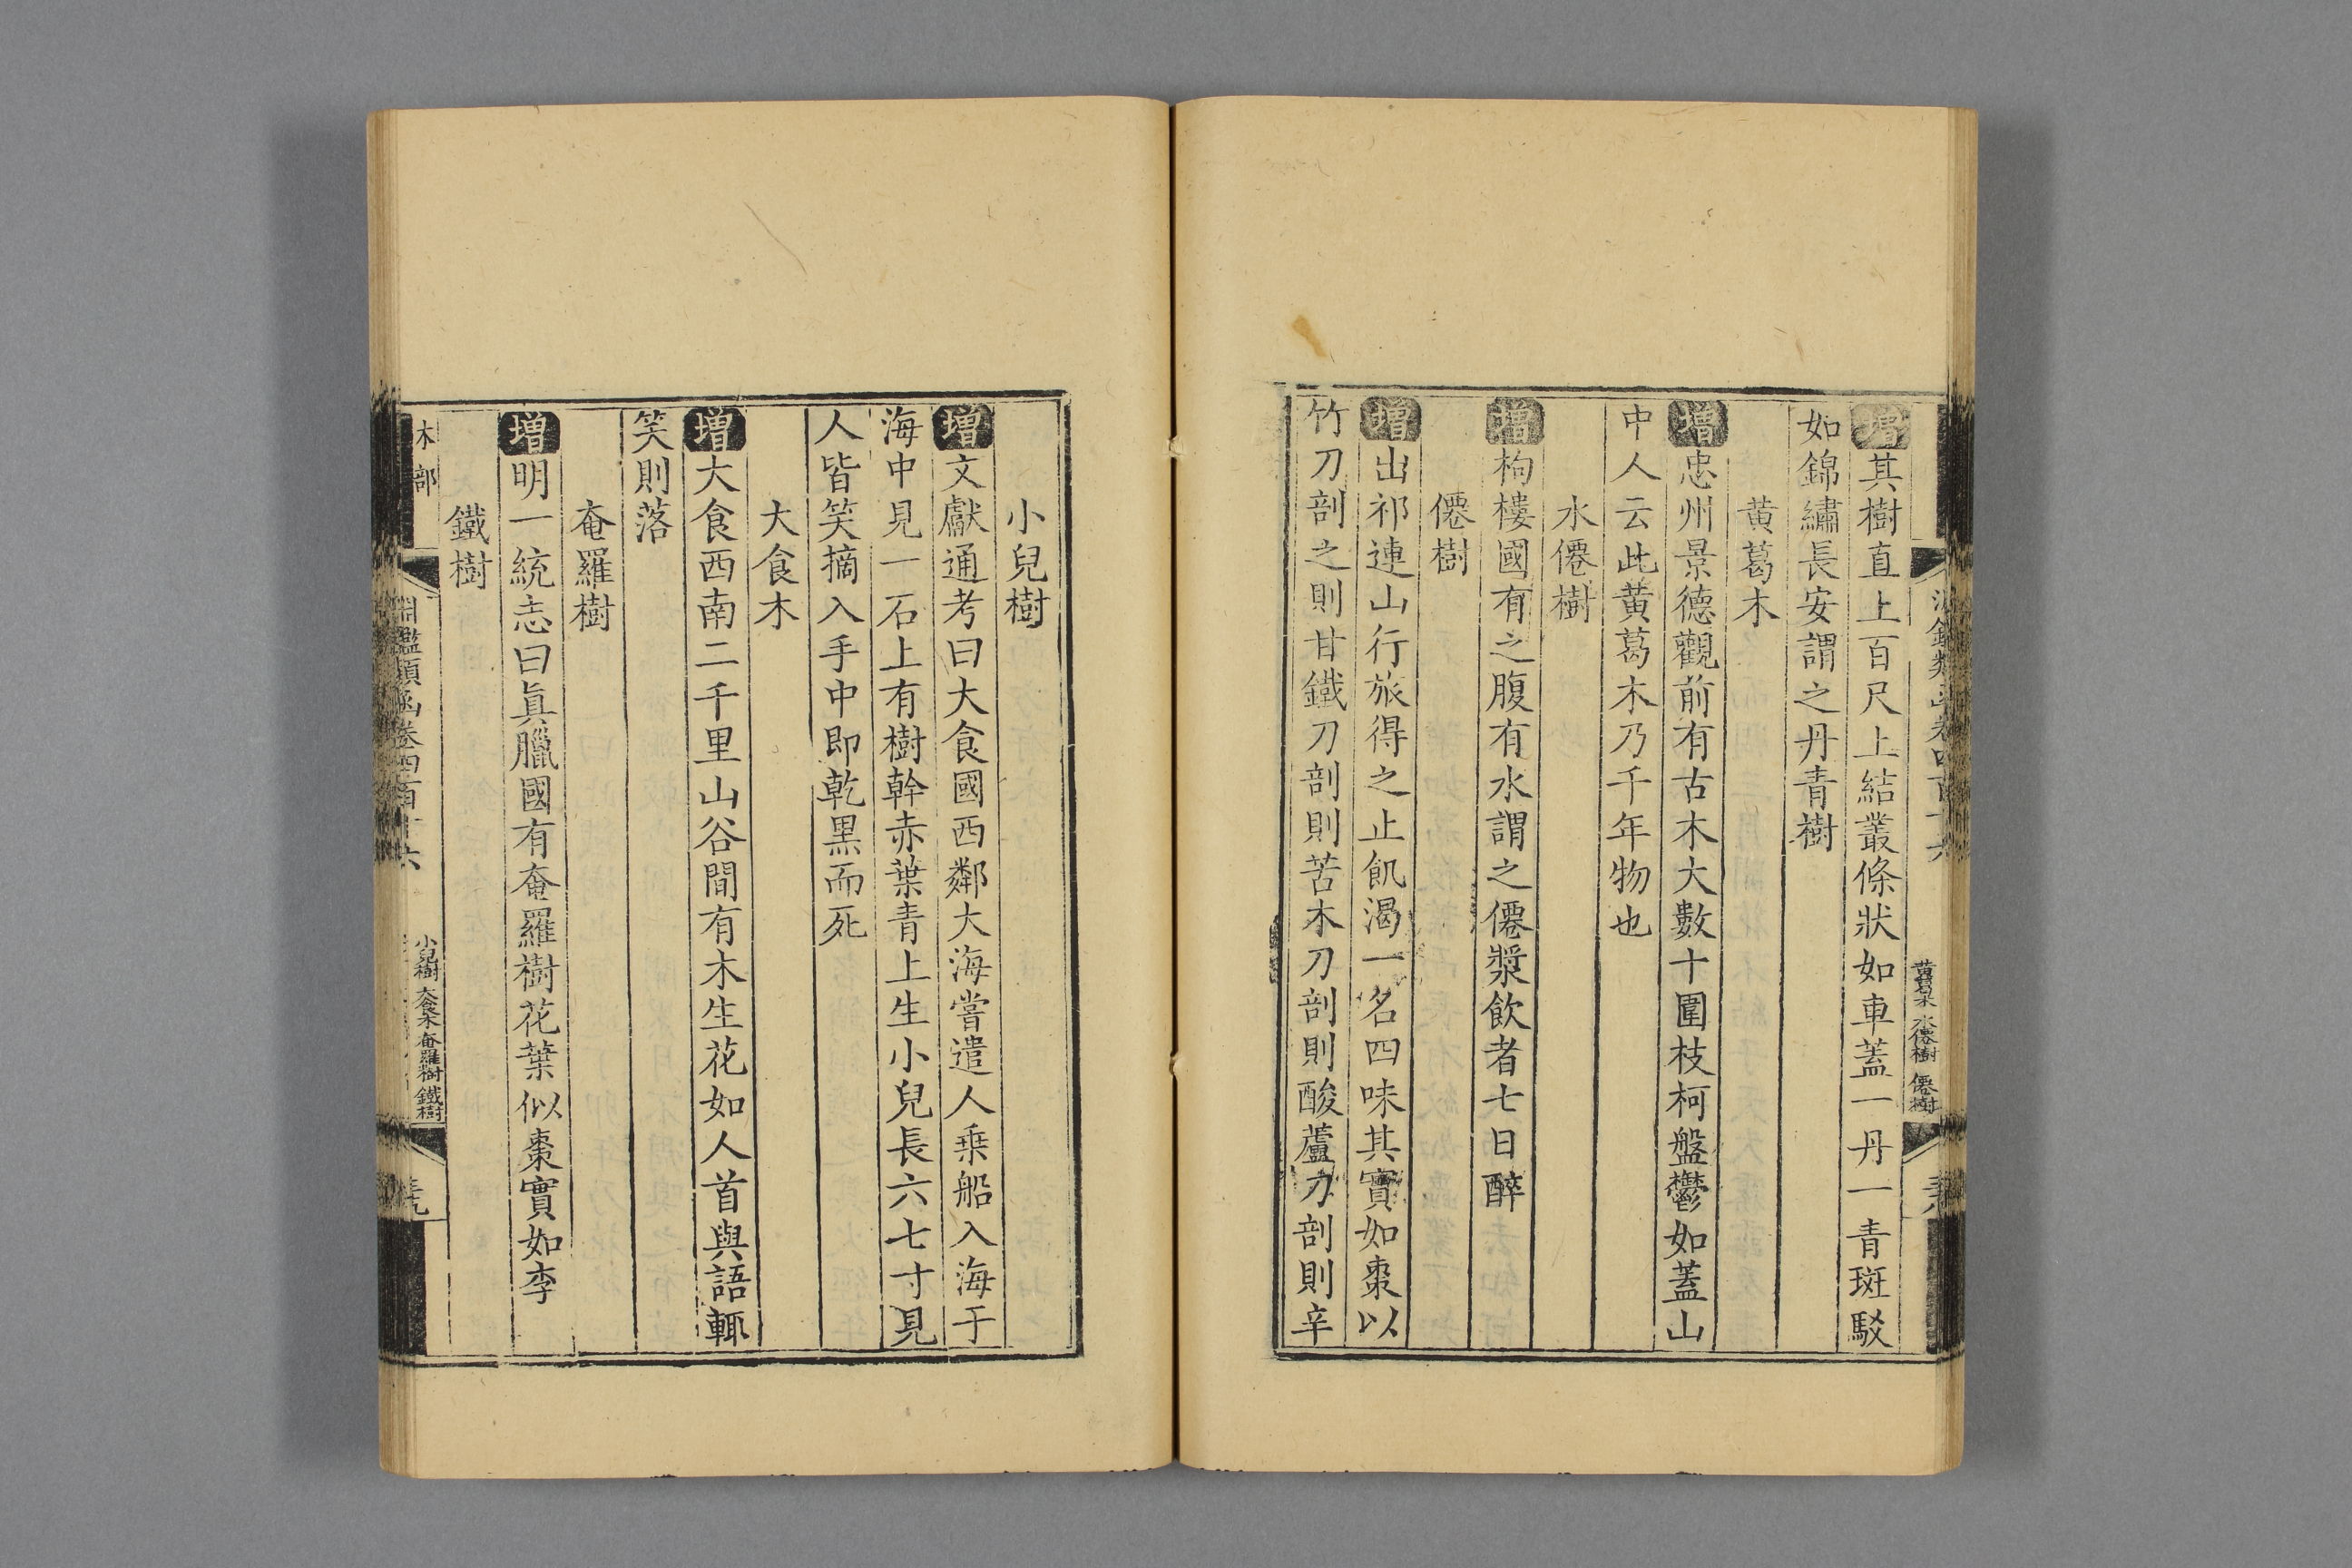 增其樹直上百尺上結叢條狀如車蓋一丹一青斑駁
如錦繡長安謂之丹青樹
黃葛木
增忠州景德觀前有古木大數十圍枝柯盤鬱如蓋山
中人云此黃葛木乃千年物也
水僊樹
增枸樓國有之腹有水謂之僊漿飲者七日醉
僊樹
增出祁連山行旅得之止飢渴一名四味其實如棗以
竹刀剖之則甘鐵刀剖則苦木刀剖則酸蘆刀剖則辛
黃葛木 水僊樹 僊樹
小兒樹
增文獻通考曰大食國西鄰大海嘗遣人乗船入海于
海中見一石上有樹幹赤葉青上生小兒長六七寸見
人皆笑摘入手中即乾黑而死
大食木
增大食西南二千里山谷間有木生花如人首與語輒
笑則落
奄羅樹
增明一統志曰真臘國有奄羅樹花葉似棗實如李
鐵樹
木部
淵鑑類函卷四百十六
小兒樹 大食木 奄羅樹 鐵樹